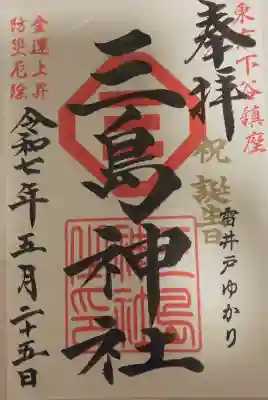 東京下谷鎮座
奉拝
祝誕生
雷井戸ゆかり
三島神社
三島神社之印
金運上昇
防災厄除
令和七年五月二十五日